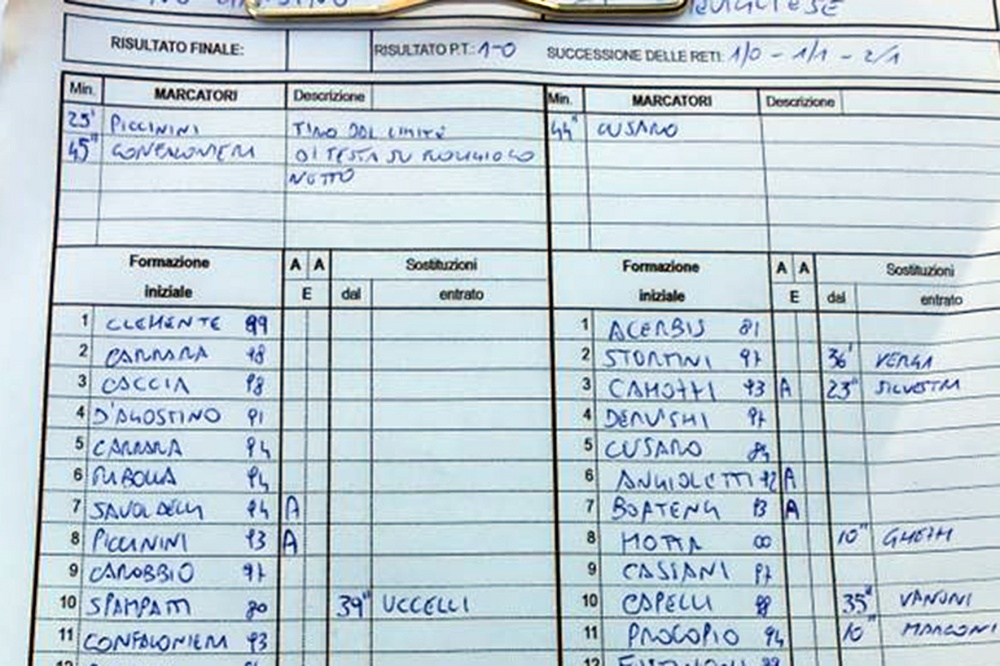 RISULTATO FINALE: RISULTATO P.T.: 1-0 SUCCESSIONE DELLE RETI: 1/0 - 1/1 - 2/1
Min. MARCATORI Descrizione Min. MARCATORI Descrizione
25' PICCININI TIRO DAL LIMITE 44" CUSARO
45" CONFALONIERI DI TESTA SU
NETTO
Formazione A A Sostituzioni Formazione A A Sostituzioni
iniziale E dal entrato iniziale E dal entrato
1 CLEMENTE 99 1 ACERBIS 81
2 CARRARA 98 2 STORTINI 97 36' VERGA
3 CACCIA 98 3 CAMOTTI 93 A 23" SILVESTRI
4 D'AGOSTINO 91 4 DERVISHI 97
5 CARRARA 94 5 CUSARO 84
6 RIBOLLA 94 6 ANGIOLETTI 92 A
7 SAVOLDELLI 94 A 7 BOATENG 93 A
8 PICCININI 93 A 8 MOTTA 00 10" GHETTI
9 CAROBBIO 97 9 CASSANI 97
10 SPAMPATTI 80 39" UCCELLI 10 CAPELLI 88 35" VANONI
11 CONFALONIERI 93 11 PROCOPIO 94 10" MARCONI
12 12